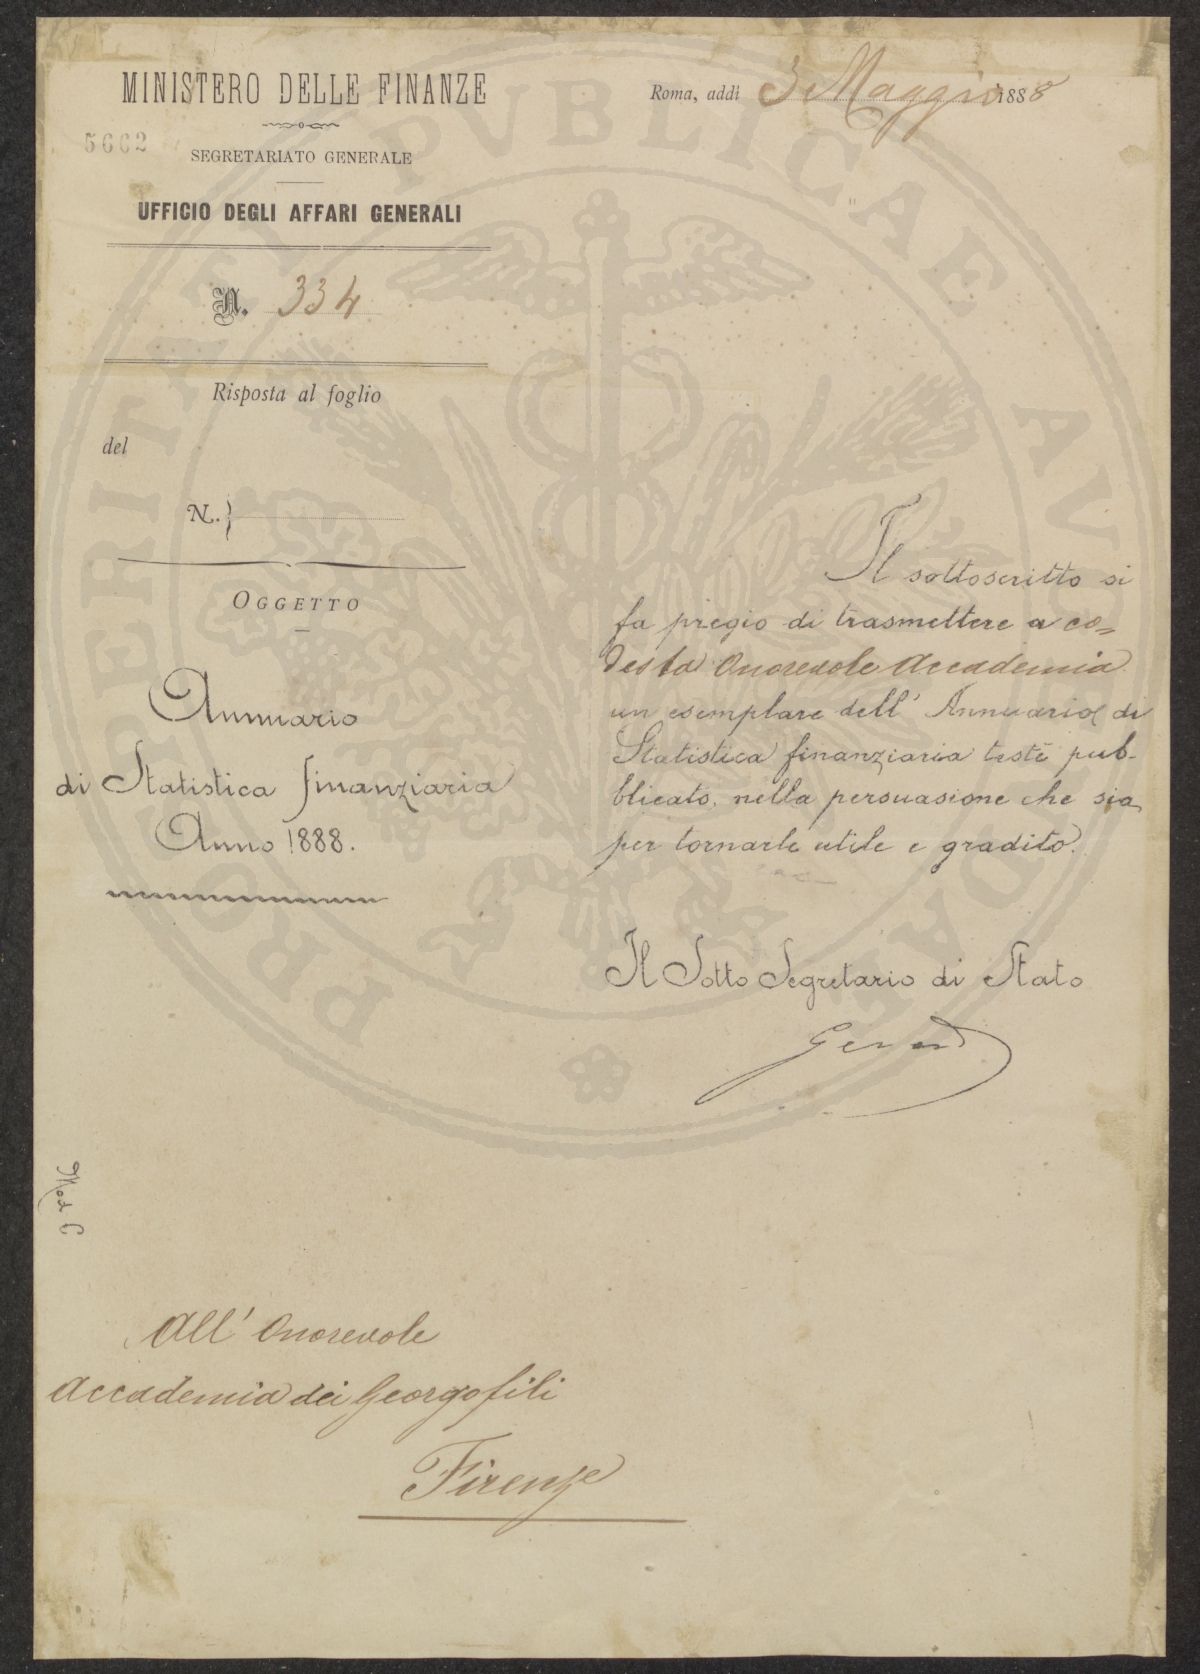 MINISTERO DELLE FINANZE
5662
SEGRETARIATO GENERALE
UFFICIO DEGLI AFFARI GENERALI
N. 334
Risposta al foglio
del
N.
OGGETTO
Annuario
di Statistica finanziaria
Anno 1888.
Roma, addì 3 Maggio 1888
Il sottoscritto si
fa pregio di trasmettere a co=
desta Onorevole Accademia
un esemplare dell' Annuario di
Statistica finanziaria testè pub-
blicato, nella persuasione che sia
per tornarle utile e gradito.
Il Sotto Segretario di Stato
Mod C
All' Onorevole
Accademia dei Georgofili
Firenze
PROSPERITATI PVBLICAE AVGENDAE